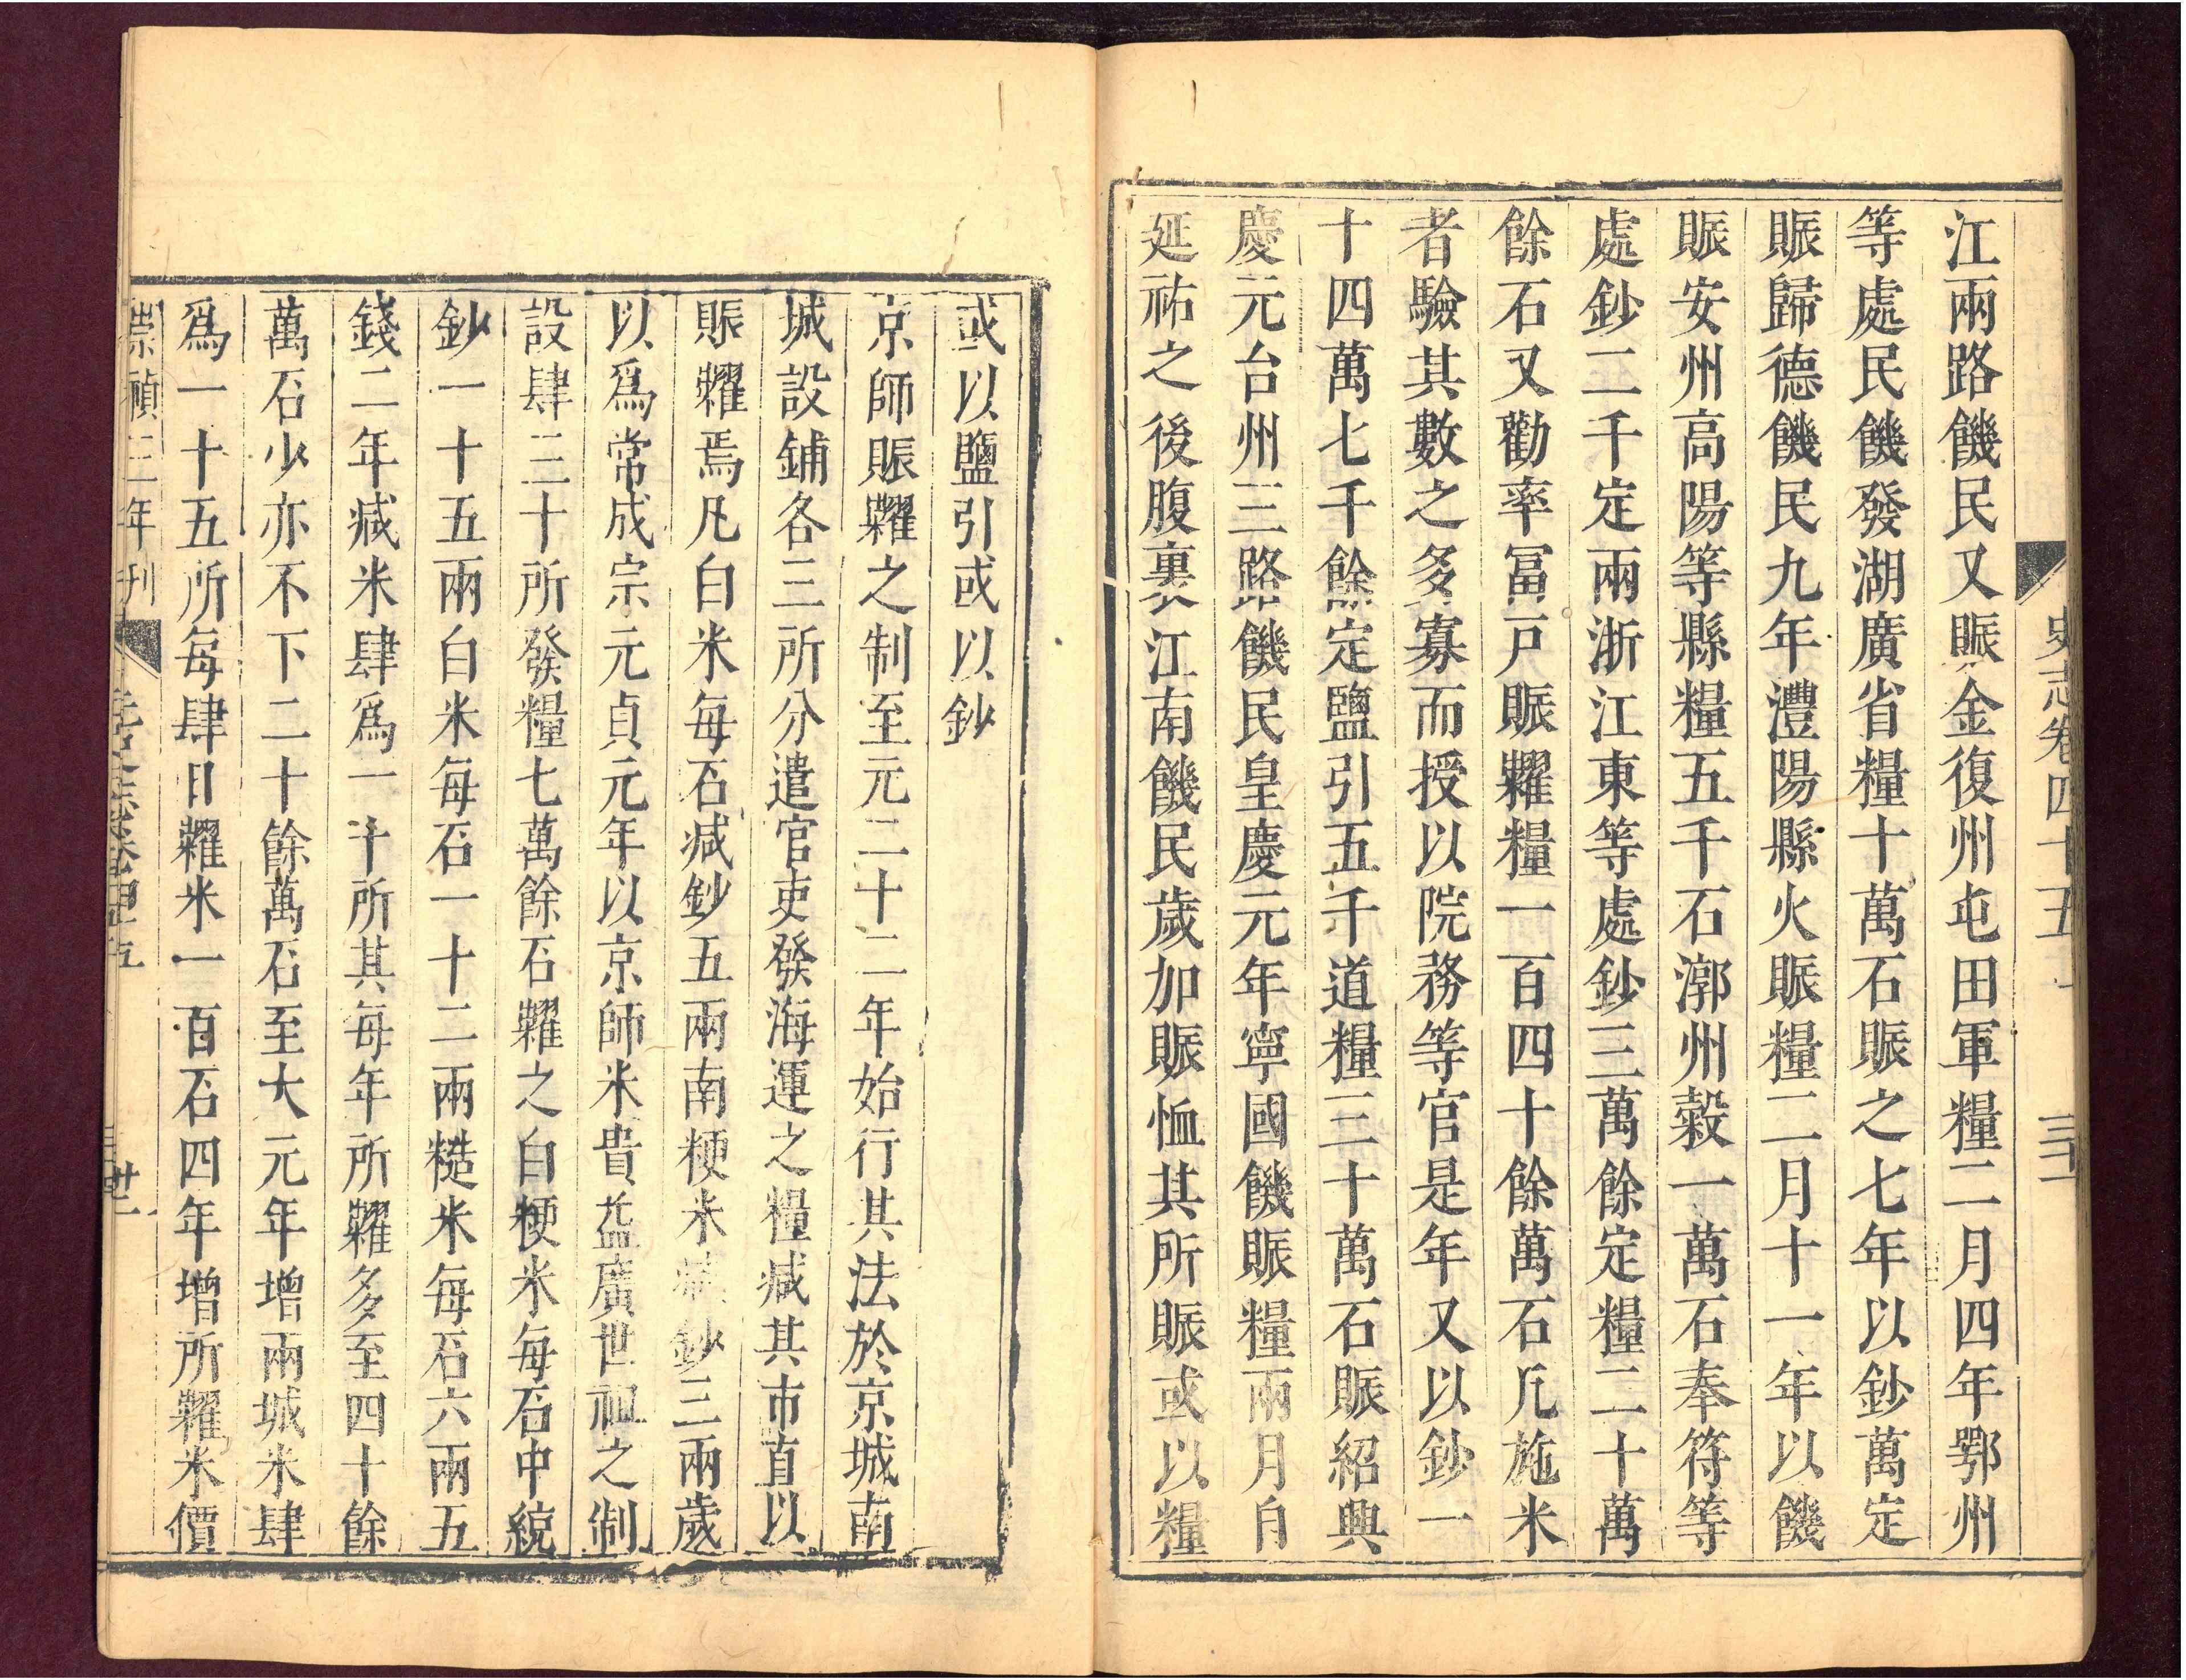 史志卷四十五
三十
江兩路饑民又賑金復州屯田軍糧二月四年鄂州
等處民饑發湖廣省糧十萬石賑之七年以鈔萬定
賑歸德饑民九年澧陽縣火賑糧二月十一年以饑
賑安州高陽等縣糧五千石漷州榖一萬石奉符等
處鈔二千定兩浙江東等處鈔三萬餘定糧二十萬
餘石又勸率冨戸賑糶糧一百四十餘萬石凡施米
者驗其數之多寡而授以院務等官是年又以鈔一
十四萬七千餘定鹽引五千道糧三十萬石賑紹興
慶元台州三路饑民皇慶元年寧國饑賑糧兩月自
延祐之後腹裏江南饑民歲加賑恤其所賑或以糧
或以鹽引或以鈔
京師賑糶之制至元二十二年始行其法於京城南
城設鋪各三所分遣官吏發海運之糧减其市直以
賑糶焉凡白米每石减鈔五兩南粳米减鈔三兩歲
以爲常成宗元貞元年以京師米貴益廣世祖之制
設肆三十所發糧七萬餘石糶之白粳米每石中統
鈔一十五兩白米每石一十二兩糙米每石六兩五
錢二年减米肆爲一十所其每年所糶多至四十餘
萬石少亦不下二十餘萬石至大元年增兩城米肆
爲一十五所每肆日糶米一百石四年增所糶米價
崇禎三年刊